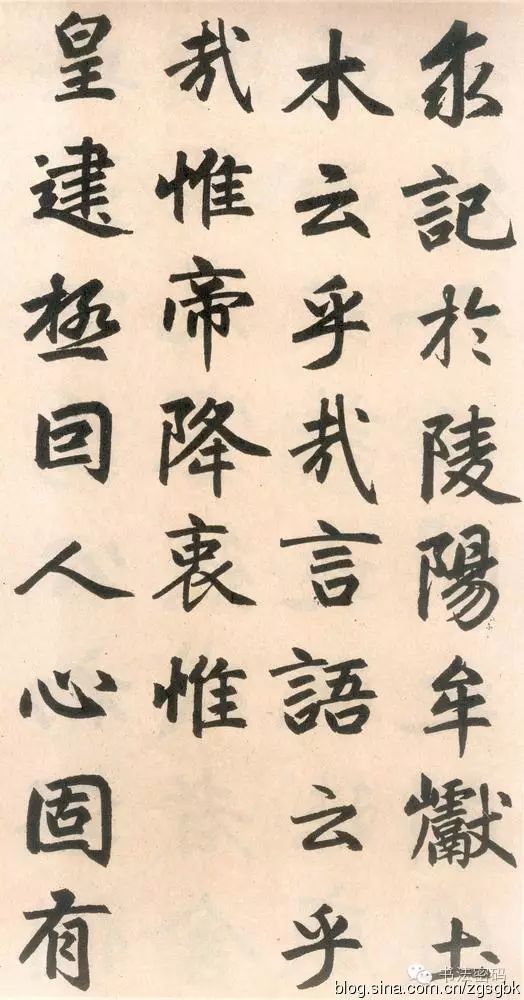 求記於陵陽牟巘土
木云乎哉言語云乎
哉惟帝降衷惟
皇建極囙人心固有
书法密码
blog.sina.com.cn/zgsgbk